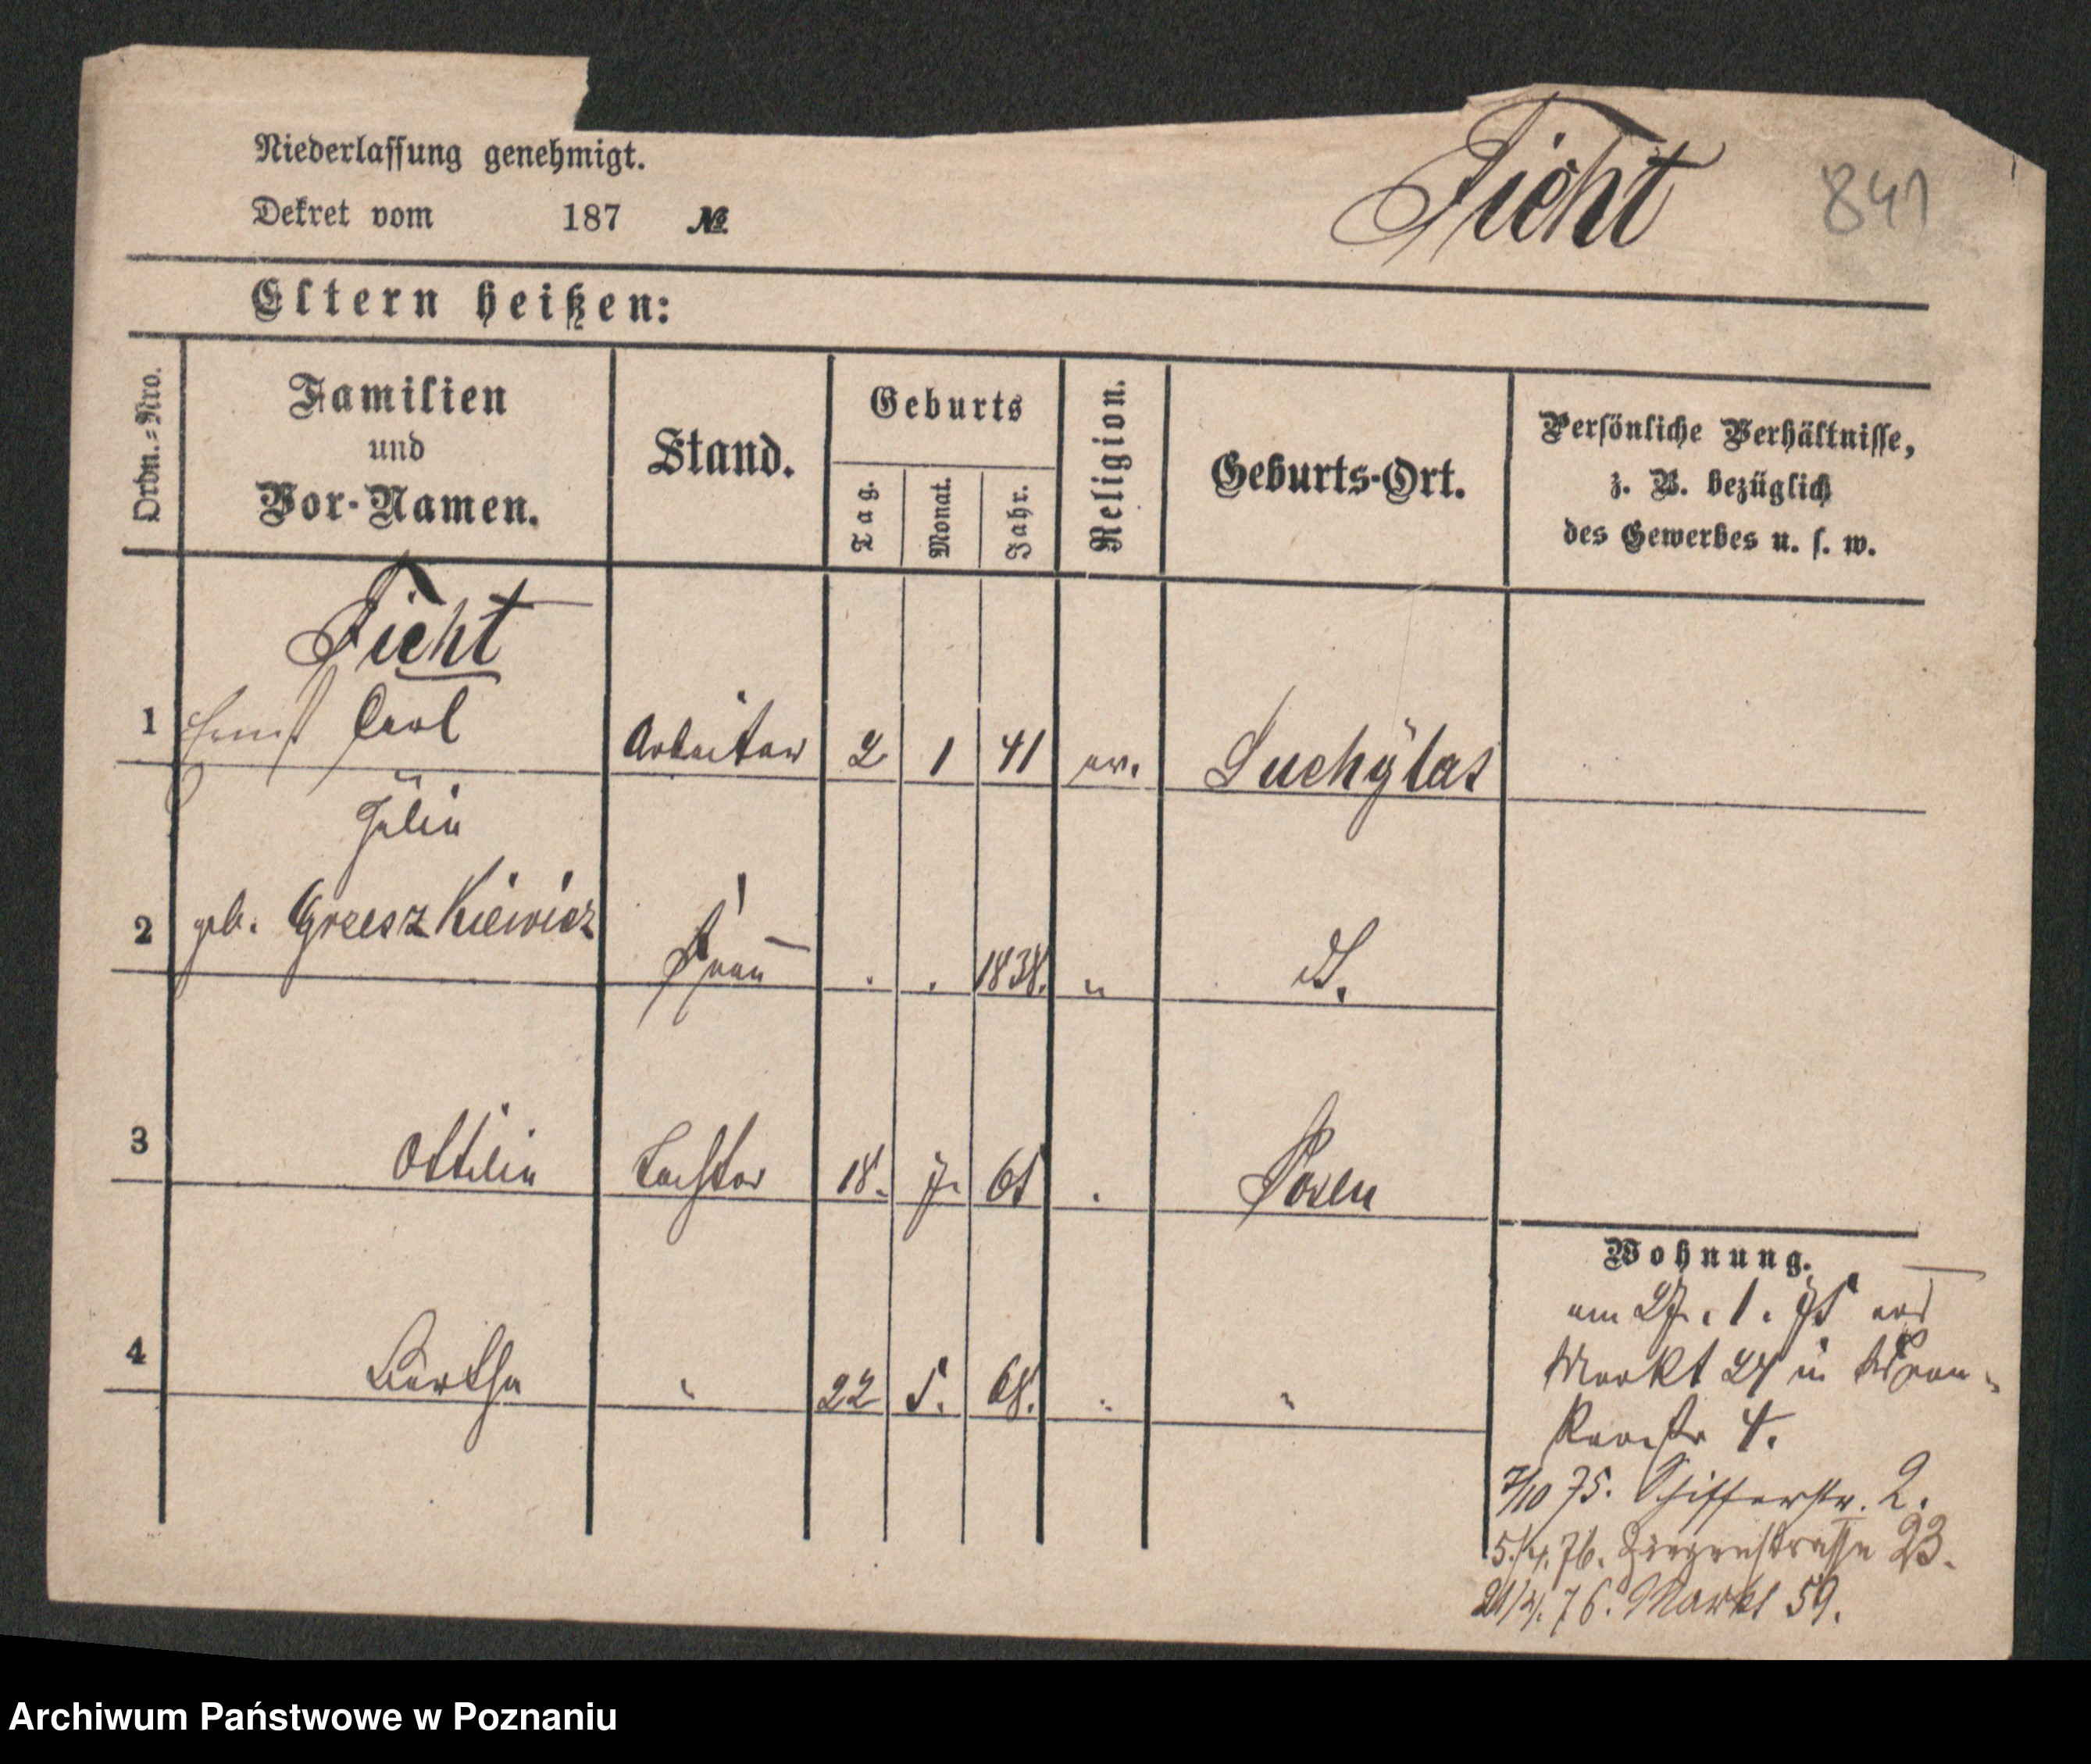 Niederlassung genehmigt.
Dekret vom 187 №
Ficht
841
Eltern heißen:
Ordn.-Nro.
Familien
und
Vor-Namen.
Stand.
Geburts
Tag.
Monat.
Jahr.
Religion.
Geburts-Ort.
Persönliche Verhältnisse,
z. B. bezüglich
des Gewerbes u. s. w.
Ficht
1 Ernst Carl Arbeiter 2 1 41 ev. Suchÿlas
Julie
2 geb. Greeszkiewicz Frau . . 1838. " d.
3 Ottilie Tochter 18. 7. 65 . Posen
4 Bertha " 22 5. 68. " "
Wohnung.
am 27. 1. 75 von
Markt 27 in
4.
7/10 75. Schifferstr. 2.
5./4. 76. 23.
21/4. 76. Markt 59.
Archiwum Państwowe w Poznaniu